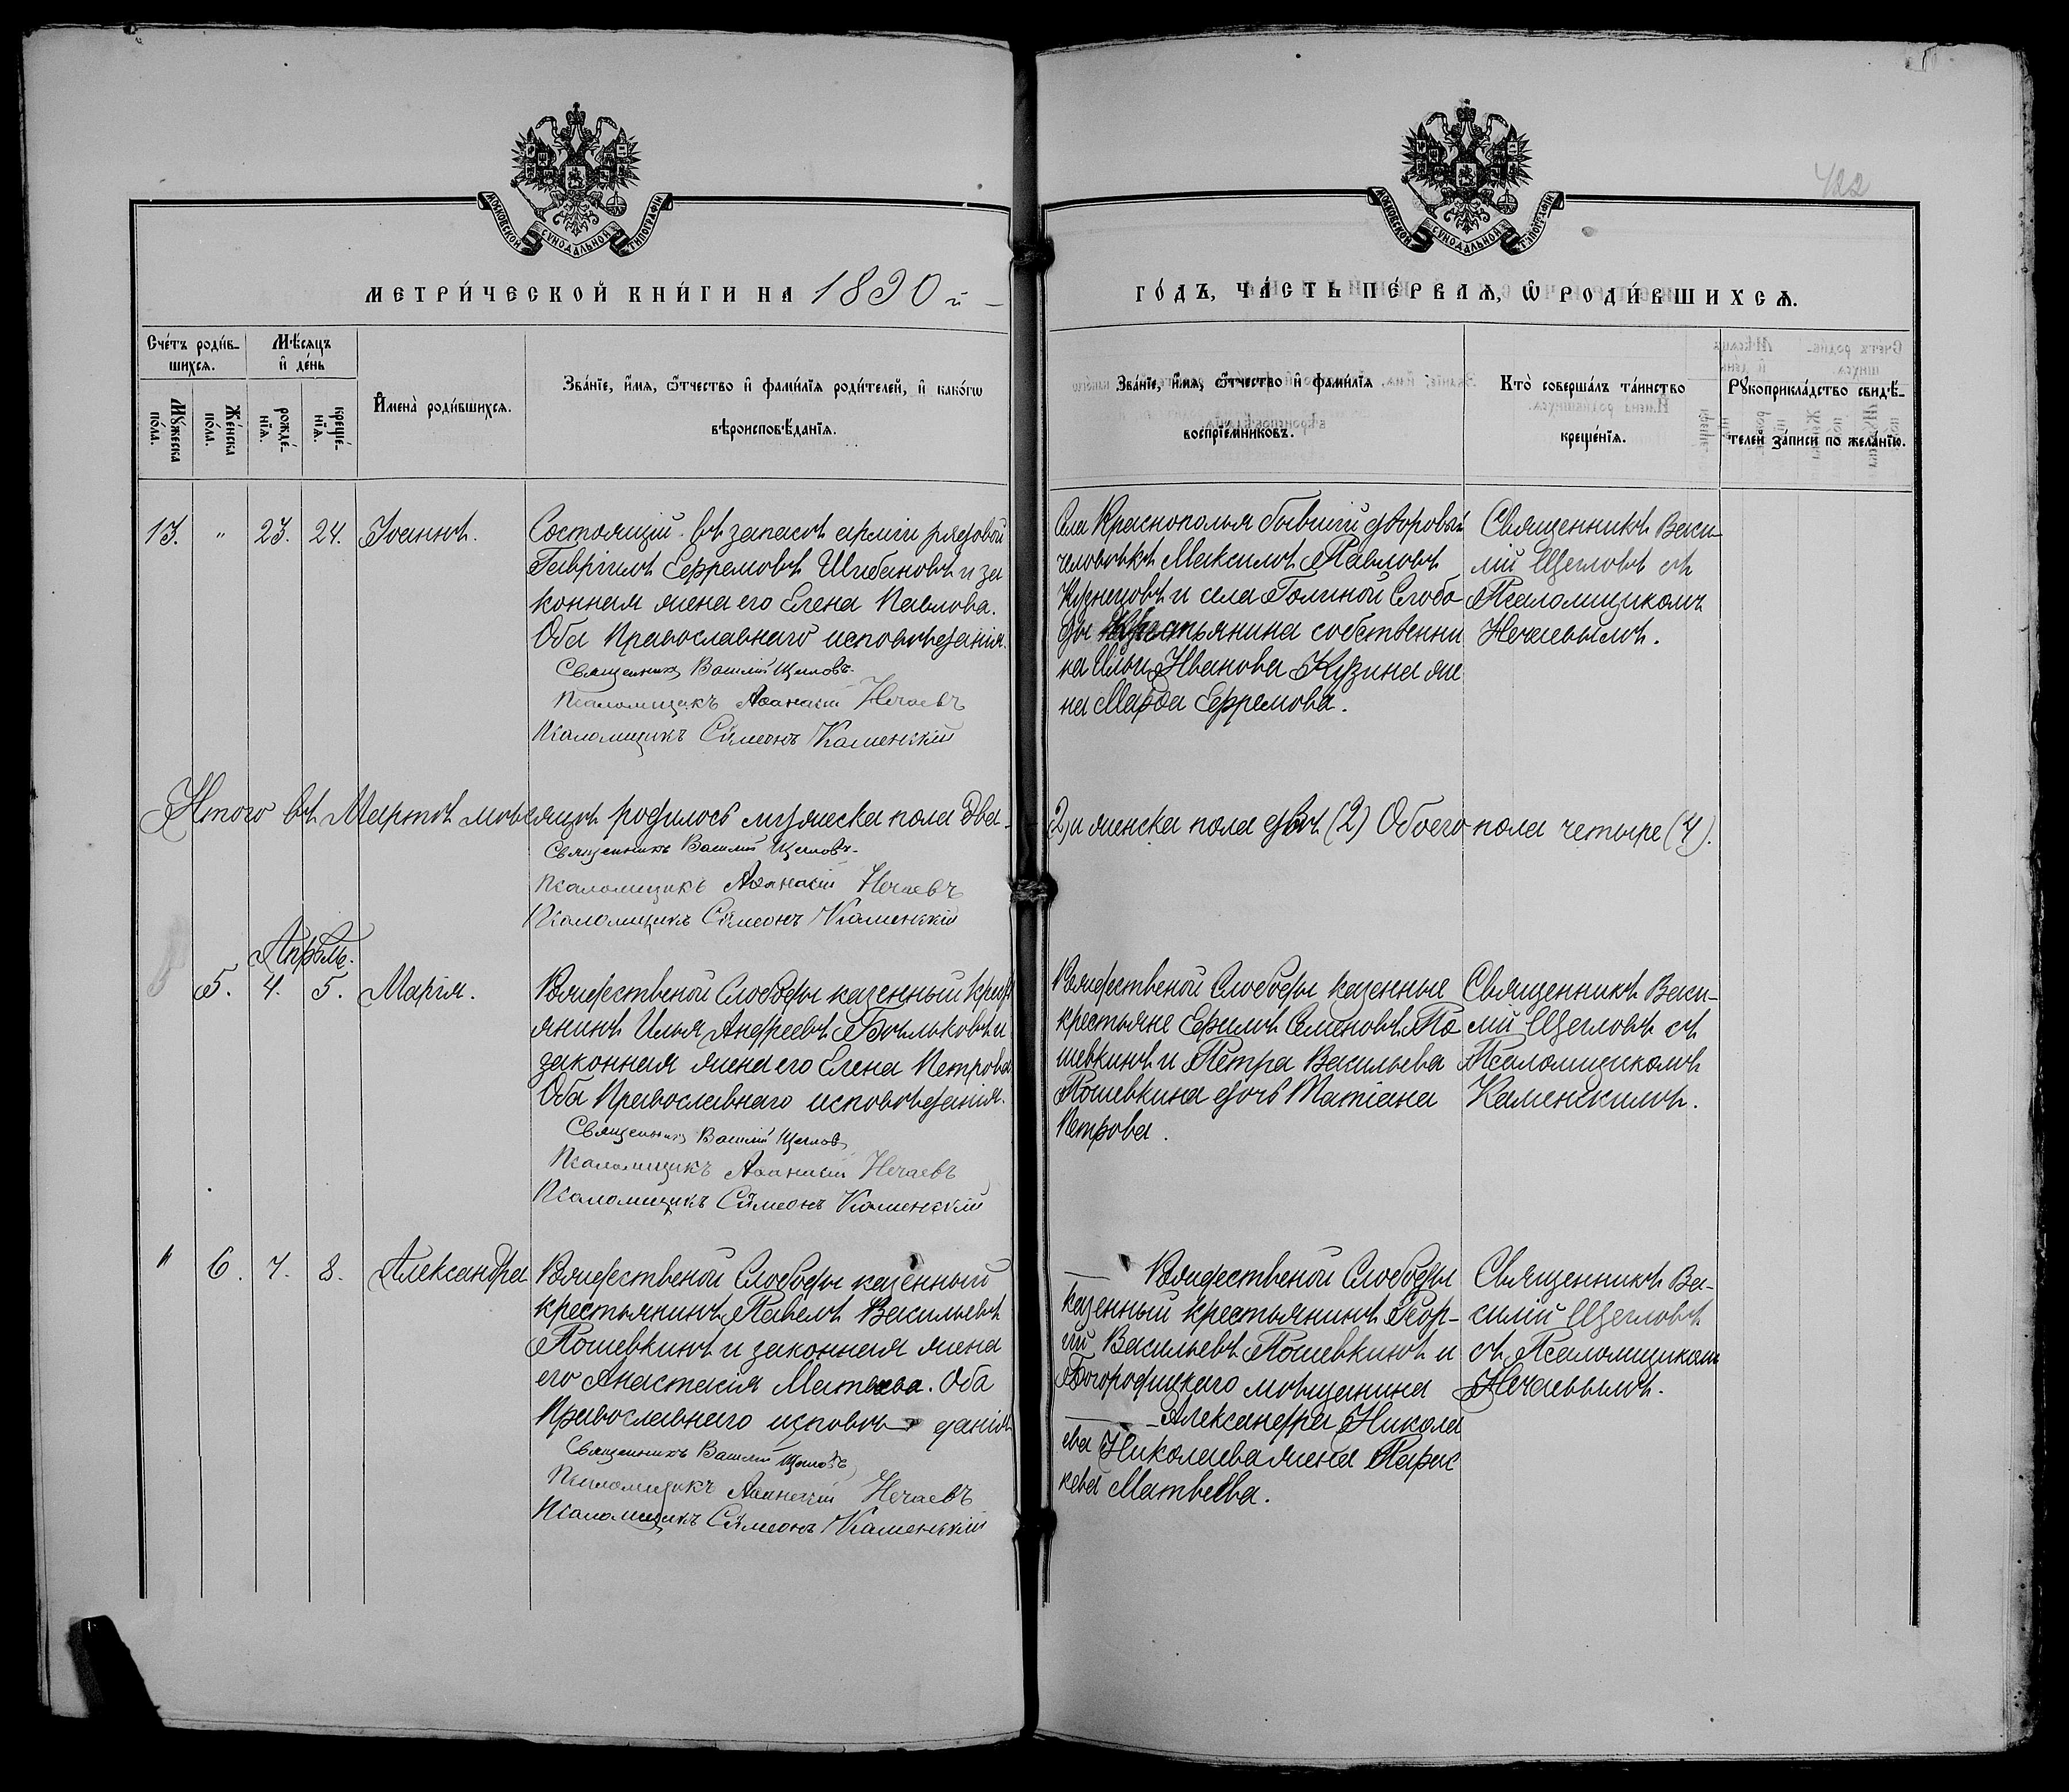 422
МОСКОВСКОЙ СѴНОДАЛЬНОЙ ТИПОГРАФІИ
МОСКОВСКОЙ СѴНОДАЛЬНОЙ ТИПОГРАФІИ
МЕТРИ́ЧЕСКОЙ КНИ́ГИ НА 1890й
ГО́ДЪ, ЧА́СТЬ ПЕ́РВАѦ, Ѡ҆ РОДИ́ВШИХСѦ.
Сче́тъ роди́в-
шихсѧ.
Мѣ́сѧцъ
и҆ де́нь
Мꙋ́жеска
по́ла.
Же́нска
по́ла.
рожде́-
нїѧ.
креще́-
нїѧ.
И҆мена̀ роди́вшихсѧ.
Зва́нїе, и҆́мѧ, ѻ҆́тчество и҆ фами́лїѧ роди́телей, и҆ како́гѡ
вѣроисповѣ́данїѧ.
Зва́нїе, и҆́мѧ, ѻ҆́тчество и҆ фами́лїѧ
воспрїе́мниковъ.
Кто̀ соверша́лъ та́инство
креще́нїѧ.
Рꙋкоприкла́дство свидѣ́-
телей за́писи по жела́нїю.
13. " 23. 24. Іоаннъ.
Состоящій въ запасѣ арміи рядовой
Гавріилъ Ефремовъ Шибановъ и за
конная жена его Елена Павлова.
Оба Православнаго исповѣданія.
Священникъ Василій Щегловъ
Псаломщикъ Аѳанасій Нечаевъ
Псаломщикъ Сѵмеонъ Каменскій
Села Краснополья бывшій дворовый
человѣкъ Максимъ Павловъ
Кузнецовъ и села Голиной Слобо
ды крестьянина собственни
ка Ильи Иванова Кузина же
на Марѳа Ефремова.
Священникъ Васи-
лій Щегловъ съ
Псаломщикомъ
Нечаевымъ.
Итого въ Мартѣ мѣсяцѣ родилось мужеска пола два
(2) и женска пола двѣ (2) Обоего пола четыре (4).
Священникъ Василій Щегловъ
Псаломщикъ Аѳанасій Нечаевъ
Псаломщикъ Сѵмеонъ Каменскій
Апрѣль.
5. 4. 5. Марія.
Рождественой Слободы казенный крест
янинъ Илья Андреевъ Бѣльковъ и
законная жена его Елена Петрова
Оба Православнаго исповѣданія.
Священникъ Василій Щегловъ
Псаломщикъ Аѳанасій Нечаевъ
Псаломщикъ Сѵмеонъ Каменскій
Рождественой Слободы казенные
крестьяне Ефимъ Семеновъ По
шевкинъ и Петра Васильева
Пошевкина дочь Татіана
Петрова.
Священникъ Васи-
лій Щегловъ съ
Псаломщикомъ
Каменскимъ.
" 6. 7. 8. Александра
Рождественой Слободы казенный
крестьянинъ Павелъ Васильевъ
Пошевкинъ и законная жена
его Анастасія Матвеева. Оба
Православнаго исповѣданія
Священникъ Василій Щегловъ
Псаломщикъ Аѳанасій Нечаевъ
Псаломщикъ Сѵмеонъ Каменскій
Рождественой Слободы
казенный крестьянинъ Геор-
гій Васильевъ Пошевкинъ и
Богородицкаго мѣщанина
Александра Никола
ева Николаева жена Парас
кева Матвеева.
Священникъ Ва-
силій Щегловъ
съ Псаломщикомъ
Нечаевымъ.